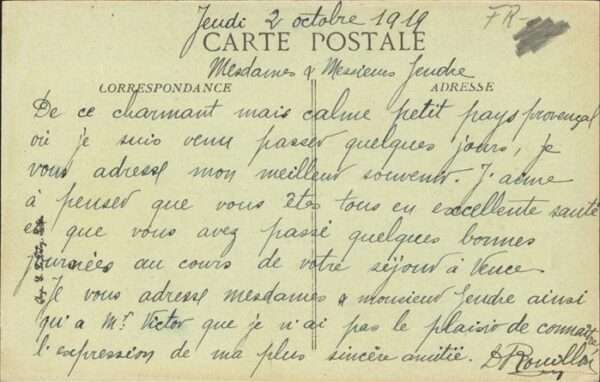 Jeudi 2 octobre 1919
FR-
CARTE POSTALE
Mesdames & Messieurs Jendre
CORRESPONDANCE
ADRESSE
De ce charmant mais calme petit pays provençal
où je suis venu passer quelques jours, je
vous adresse mon meilleur souvenir. J'aime
à penser que vous êtes tous en excellente santé
et que vous avez passé quelques bonnes
journées au cours de votre séjour à Vence.
Je vous adresse mesdames & monsieur Jendre ainsi
qu'a Mr Victor que je n'ai pas le plaisir de connaître
l'expression de ma plus sincère amitié. Rouillon